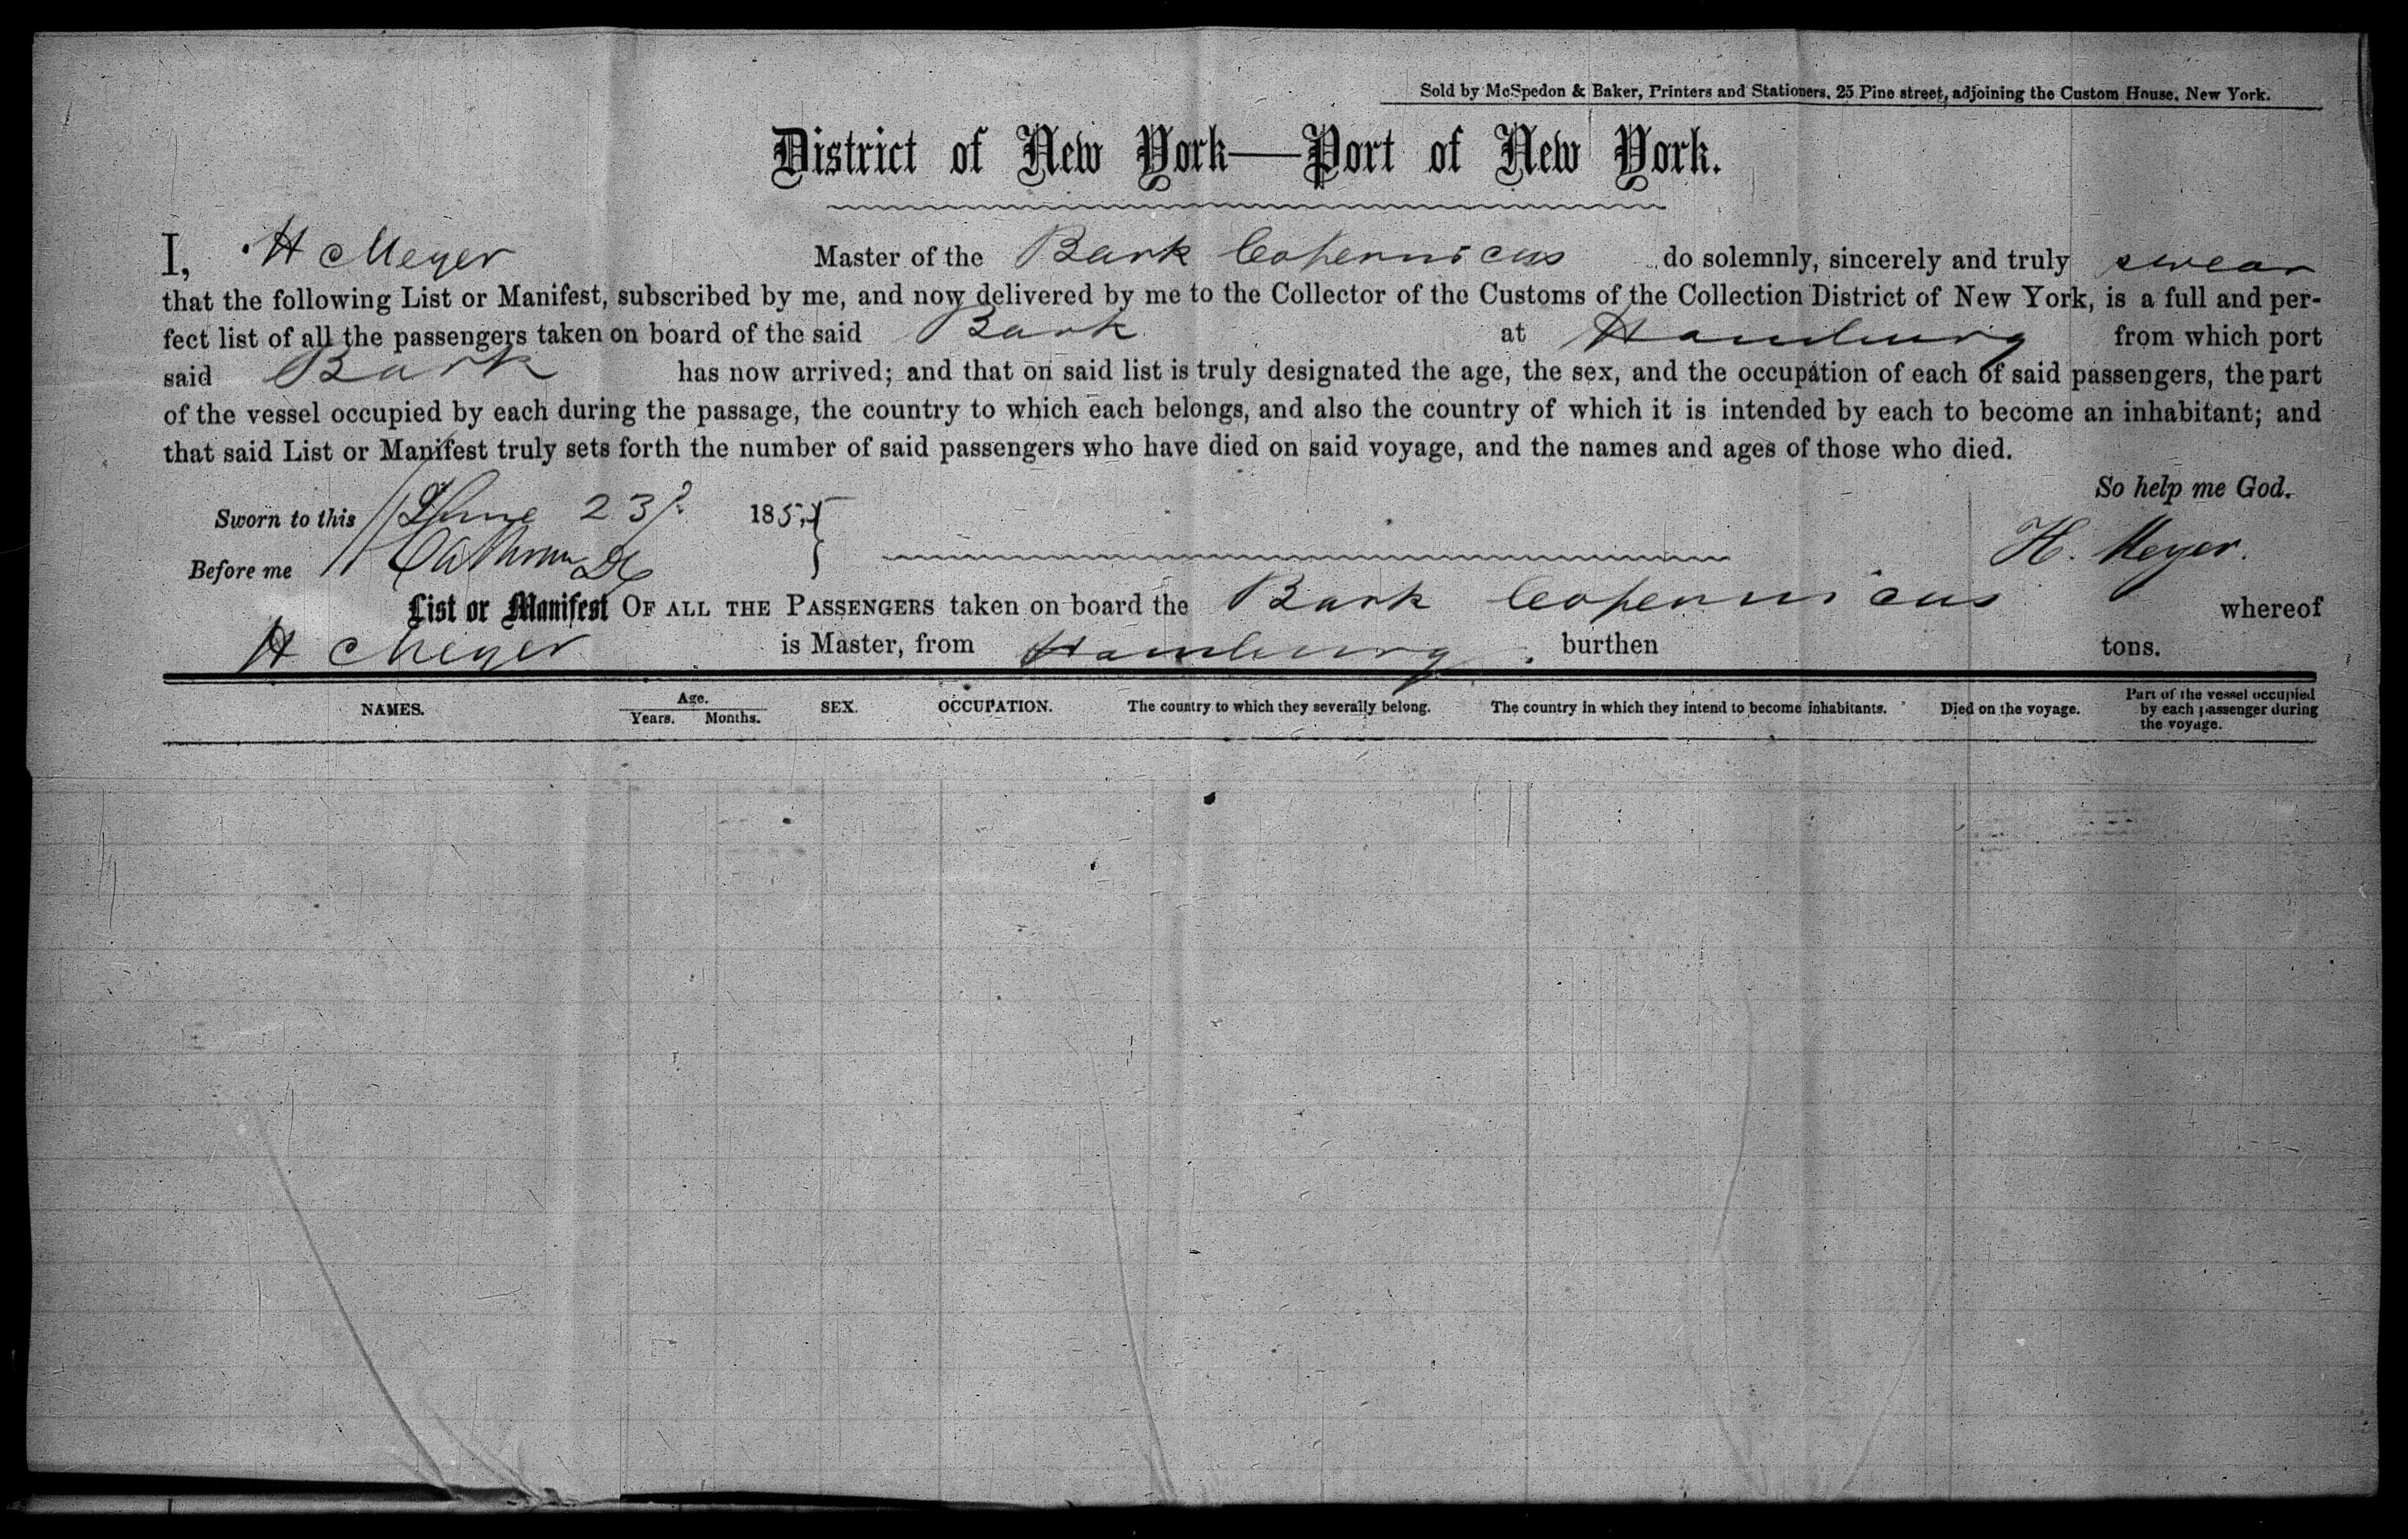 Sold by McSpedon & Baker, Printers and Stationers, 25 Pine street, adjoining the Custom House, New York.
District of New York—Port of New York.
I, H Meyer Master of the Bark Copernicus do solemnly, sincerely and truly swear
that the following List or Manifest, subscribed by me, and now delivered by me to the Collector of the Customs of the Collection District of New York, is a full and per-
fect list of all the passengers taken on board of the said Bark at Hamburg from which port
said Bark has now arrived; and that on said list is truly designated the age, the sex, and the occupation of each of said passengers, the part
of the vessel occupied by each during the passage, the country to which each belongs, and also the country of which it is intended by each to become an inhabitant; and
that said List or Manifest truly sets forth the number of said passengers who have died on said voyage, and the names and ages of those who died.
So help me God.
Sworn to this June 23 185
Before me
H. Meyer.
List or Manifest OF ALL THE PASSENGERS taken on board the Bark Copernicus whereof
H Meyer is Master, from Hamburg burthen tons.
NAMES. Age. Years. Months. SEX. OCCUPATION. The country to which they severally belong. The country in which they intend to become inhabitants. Died on the voyage. Part of the vessel occupied by each passenger during the voyage.